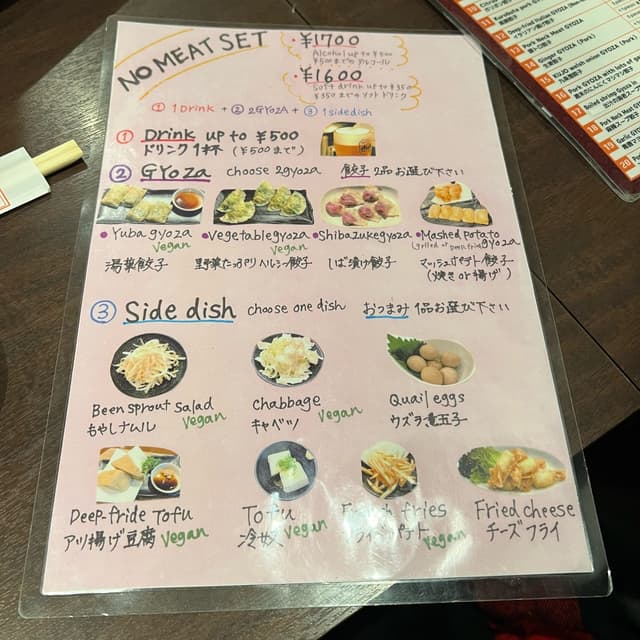 NO MEAT SET
・¥1700
Alcohol up to ¥500
¥500までのアルコール
・¥1600
Soft drink up to ¥350
¥350までのソフトドリンク
① 1Drink + ② 2GYOZA + ③ 1sidedish
① Drink up to ¥500
ドリンク1杯 (¥500まで)
② GYOZA choose 2gyoza 餃子2品お選び下さい
・Yuba gyoza
Vegan
湯葉餃子
・Vegetablegyoza
Vegan
野菜たっぷりヘルシー餃子
・Shibazukegyoza
しば漬け餃子
・Mashed potato
(grilled or deep fried) gyoza
マッシュポテト餃子
(焼きor揚げ)
③ Side dish choose one dish おつまみ 1品お選び下さい
Been sprout salad
もやしナムル Vegan
Chabbage
キャベツ Vegan
Quail eggs
ウズラ煮玉子
Deep-fride Tofu
アツ揚げ豆腐 Vegan
Tofu
冷奴 Vegan
fries
Vegan
Fried cheese
チーズフライ
12
13
14
15
16
17
18
19
20
GYOZA (Pork)